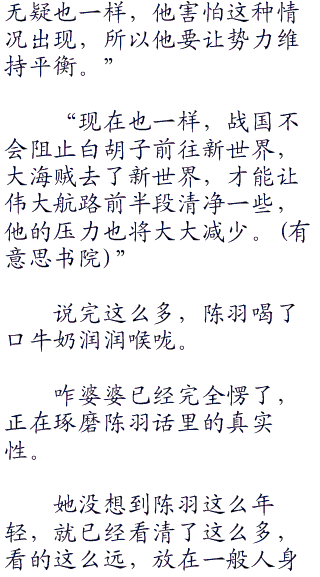 无疑也一样，他害怕这种情
况出现，所以他要让势力维
持平衡。”
“现在也一样，战国不
会阻止白胡子前往新世界，
大海贼去了新世界，才能让
伟大航路前半段清净一些，
他的压力也将大大减少。(有
意思书院)”
说完这么多，陈羽喝了
口牛奶润润喉咙。
咋婆婆已经完全愣了，
正在琢磨陈羽话里的真实
性。
她没想到陈羽这么年
轻，就已经看清了这么多，
看的这么远，放在一般人身